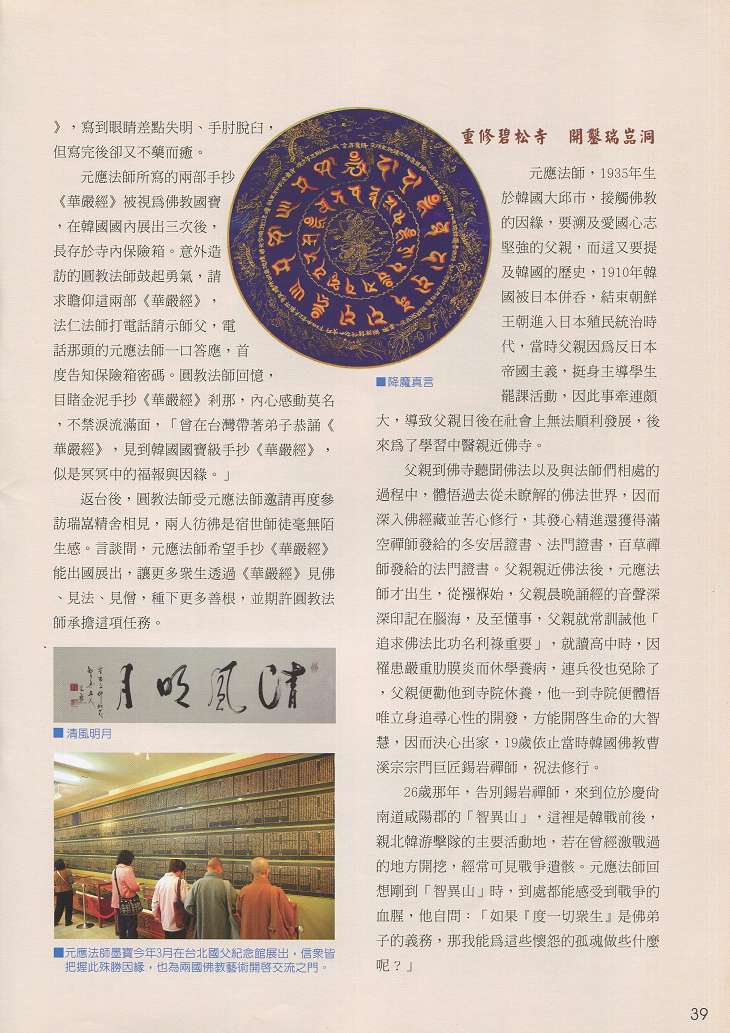 》，寫到眼睛差點失明、手肘脫臼，
但寫完後卻又不藥而癒。
元應法師所寫的兩部手抄
《華嚴經》被視爲佛教國寶
，在韓國國內展出三次後，
長存於寺內保險箱。意外造
訪的圓教法師鼓起勇氣，請
求瞻仰這兩部《華嚴經》，
法仁法師打電話請示師父，電
話那頭的元應法師一口答應，首
度告知保險箱密碼。圓教法師回憶，
目睹金泥手抄《華嚴經》剎那，內心感動莫名
，不禁淚流滿面，「曾在台灣帶著弟子恭誦《
華嚴經》，見到韓國國寶級手抄《華嚴經》，
似是冥冥中的福報與因緣。」
返台後，圓教法師受元應法師邀請再度參
訪瑞嵓精舍相見，兩人彷彿是宿世師徒毫無陌
生感。言談間，元應法師希望手抄《華嚴經》
能出國展出，讓更多衆生透過《華嚴經》見佛
、見法、見僧，種下更多善根，並期許圓教法
師承擔這項任務。
清風明月
■ 清風明月
■元應法師墨寶今年3月在台北國父紀念館展出，信衆皆
把握此殊勝因緣，也為兩國佛教藝術開啓交流之門。
■降魔真言
重修碧松寺　開鑿瑞嵓洞
元應法師，1935年生
於韓國大邱市，接觸佛教
的因緣，要溯及愛國心志
堅強的父親，而這又要提
及韓國的歷史，1910年韓
國被日本併吞，結束朝鮮
王朝進入日本殖民統治時
代，當時父親因爲反日本
帝國主義，挺身主導學生
罷課活動，因此事牽連頗
大，導致父親日後在社會上無法順利發展，後
來爲了學習中醫親近佛寺。
父親到佛寺聽聞佛法以及與法師們相處的
過程中，體悟過去從未瞭解的佛法世界，因而
深入佛經藏並苦心修行，其發心精進還獲得滿
空禪師發給的冬安居證書、法門證書，百草禪
師發給的法門證書。父親親近佛法後，元應法
師才出生，從襁褓始，父親晨晚誦經的音聲深
深印記在腦海，及至懂事，父親就常訓誡他「
追求佛法比功名利祿重要」，就讀高中時，因
罹患嚴重肋膜炎而休學養病，連兵役也免除了
，父親便勸他到寺院休養，他一到寺院便體悟
唯立身追尋心性的開發，方能開啓生命的大智
慧，因而決心出家，19歲依止當時韓國佛教曹
溪宗宗門巨匠錫岩禪師，祝法修行。
26歲那年，告別錫岩禪師，來到位於慶尙
南道咸陽郡的「智異山」，這裡是韓戰前後，
親北韓游擊隊的主要活動地，若在曾經激戰過
的地方開挖，經常可見戰爭遺骸。元應法師回
想剛到「智異山」時，到處都能感受到戰爭的
血腥，他自問：「如果『度一切衆生』是佛弟
子的義務，那我能爲這些懷怨的孤魂做些什麼
呢？」
39